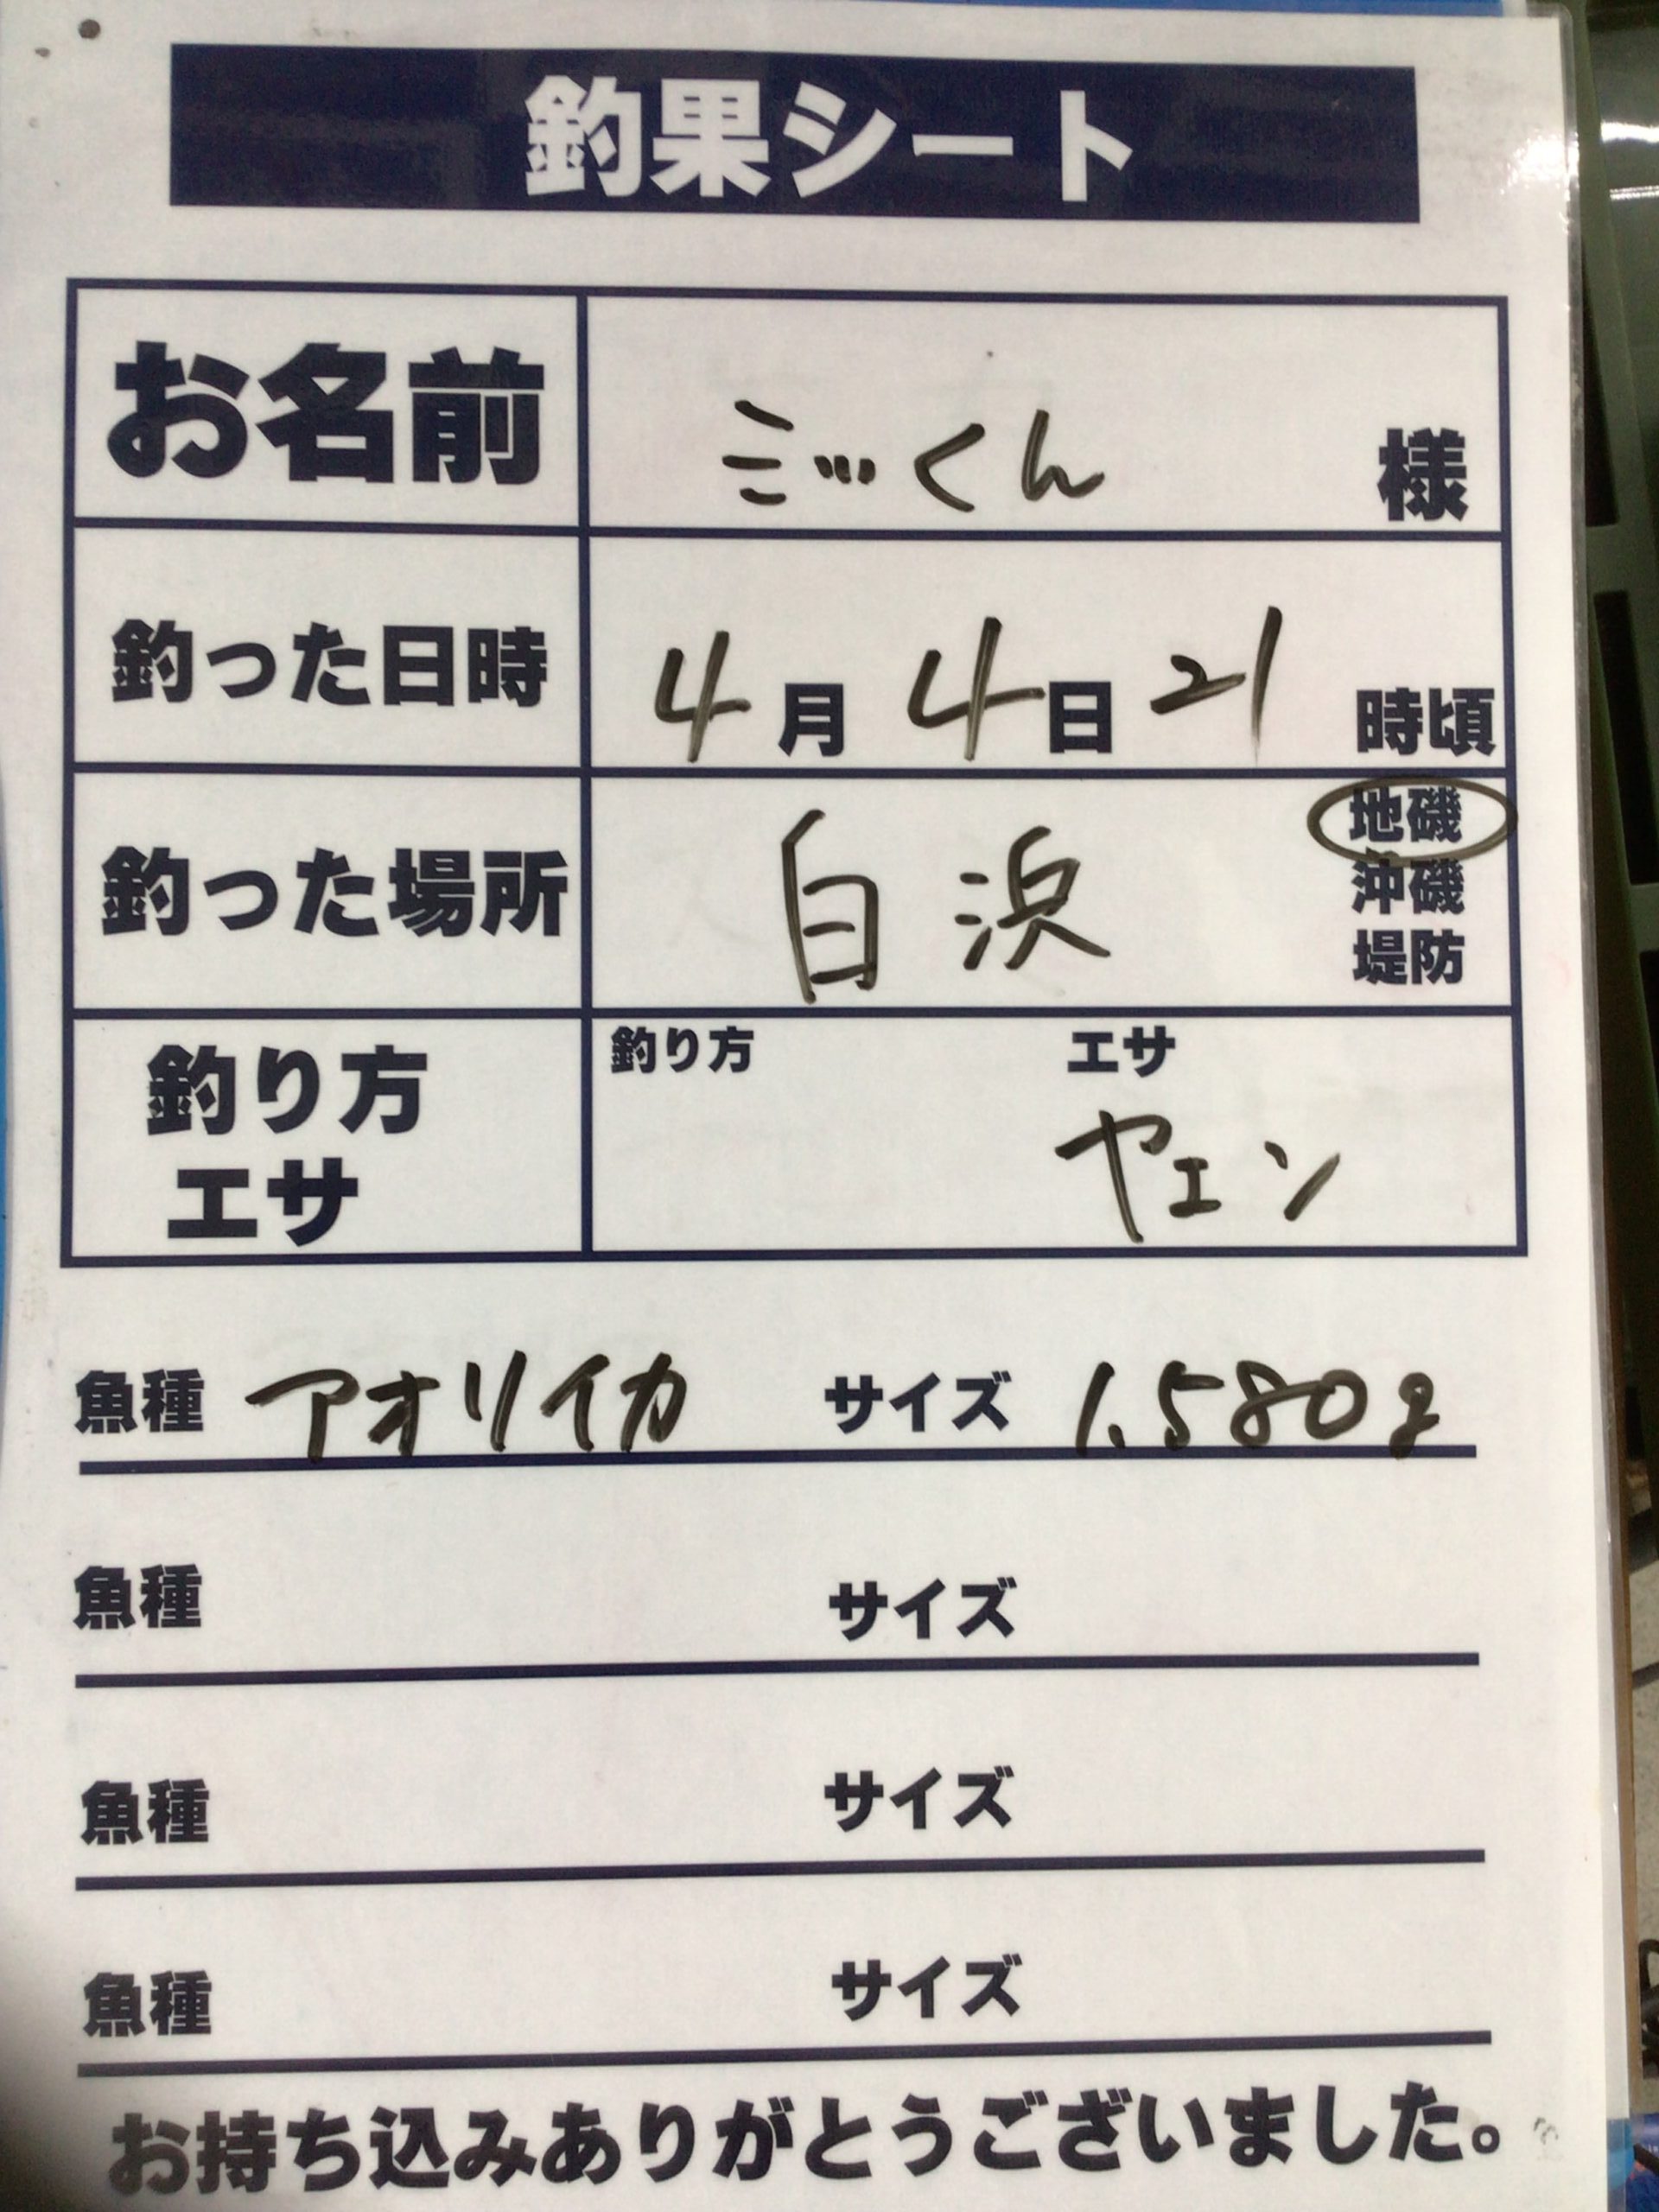 釣果シート
お名前 ミッくん 様
釣った日時 4月4日21時頃
釣った場所 白浜 地磯
沖磯
堤防
釣り方 エサ
釣り方
エサ
ヤエン
魚種 アオリイカ サイズ 1.580g
魚種 サイズ
魚種 サイズ
魚種 サイズ
お持ち込みありがとうございました。